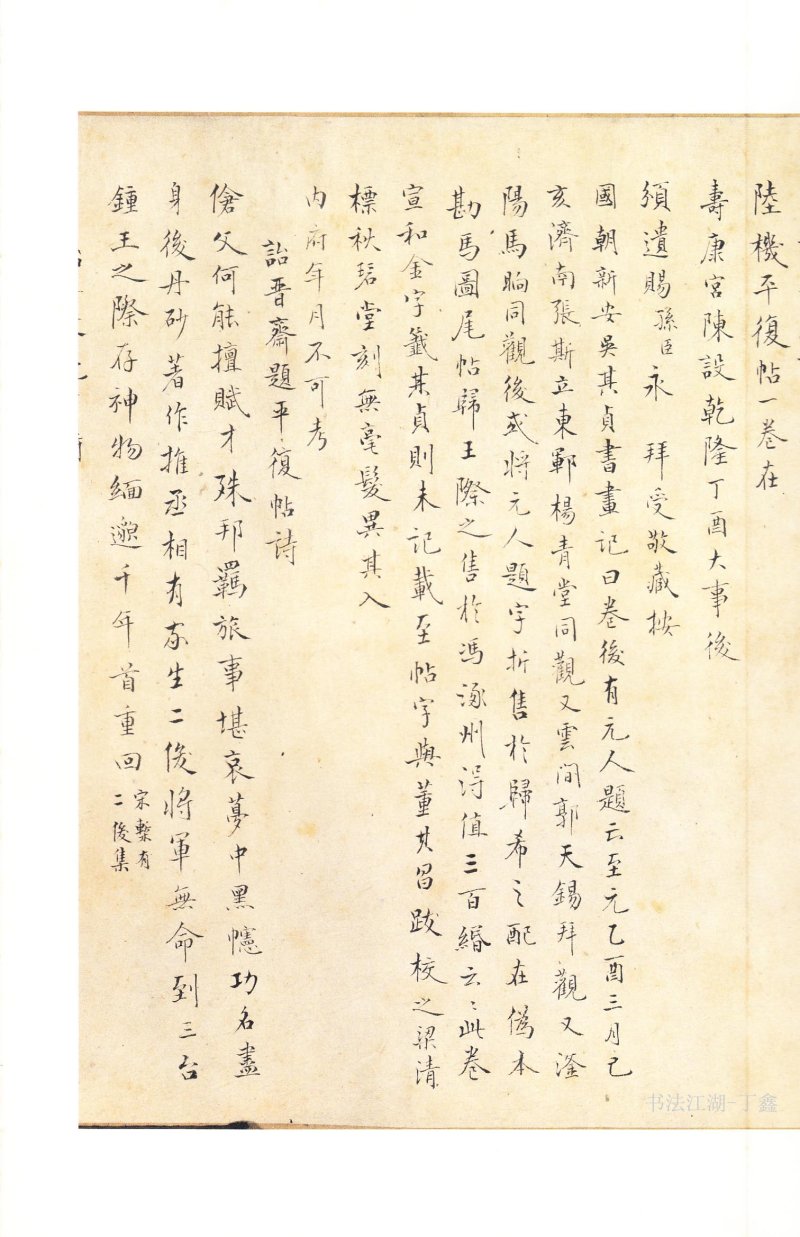 陸機平復帖一卷在
壽康宮陳設乾隆丁酉大事後
頒遺賜孫臣永 拜受敬藏按
國朝新安吳其貞書畫記曰卷後有元人題云至元乙酉三月己
亥濟南張斯立東鄆楊青堂同觀又雲間郭天錫拜觀又滏
陽馬昫同觀後或將元人題字折售於歸希之配在偽本
勘馬圖尾帖歸王際之售於馮涿州得值三百緡云〻此卷
宣和金字籤其貞則未記載至帖字與董其昌跋校之梁清
標秋碧堂刻無毫髮異其入
內府年月不可考
詒晉齋題平復帖詩
傖父何能擅賦才殊邦羈旅事堪哀夢中黑幰功名盡
身後丹砂著作推丞相有家生二俊將軍無命到三台
鍾王之際存神物緬邈千年首重回
宋槧有
二俊集
书法江湖-丁鑫